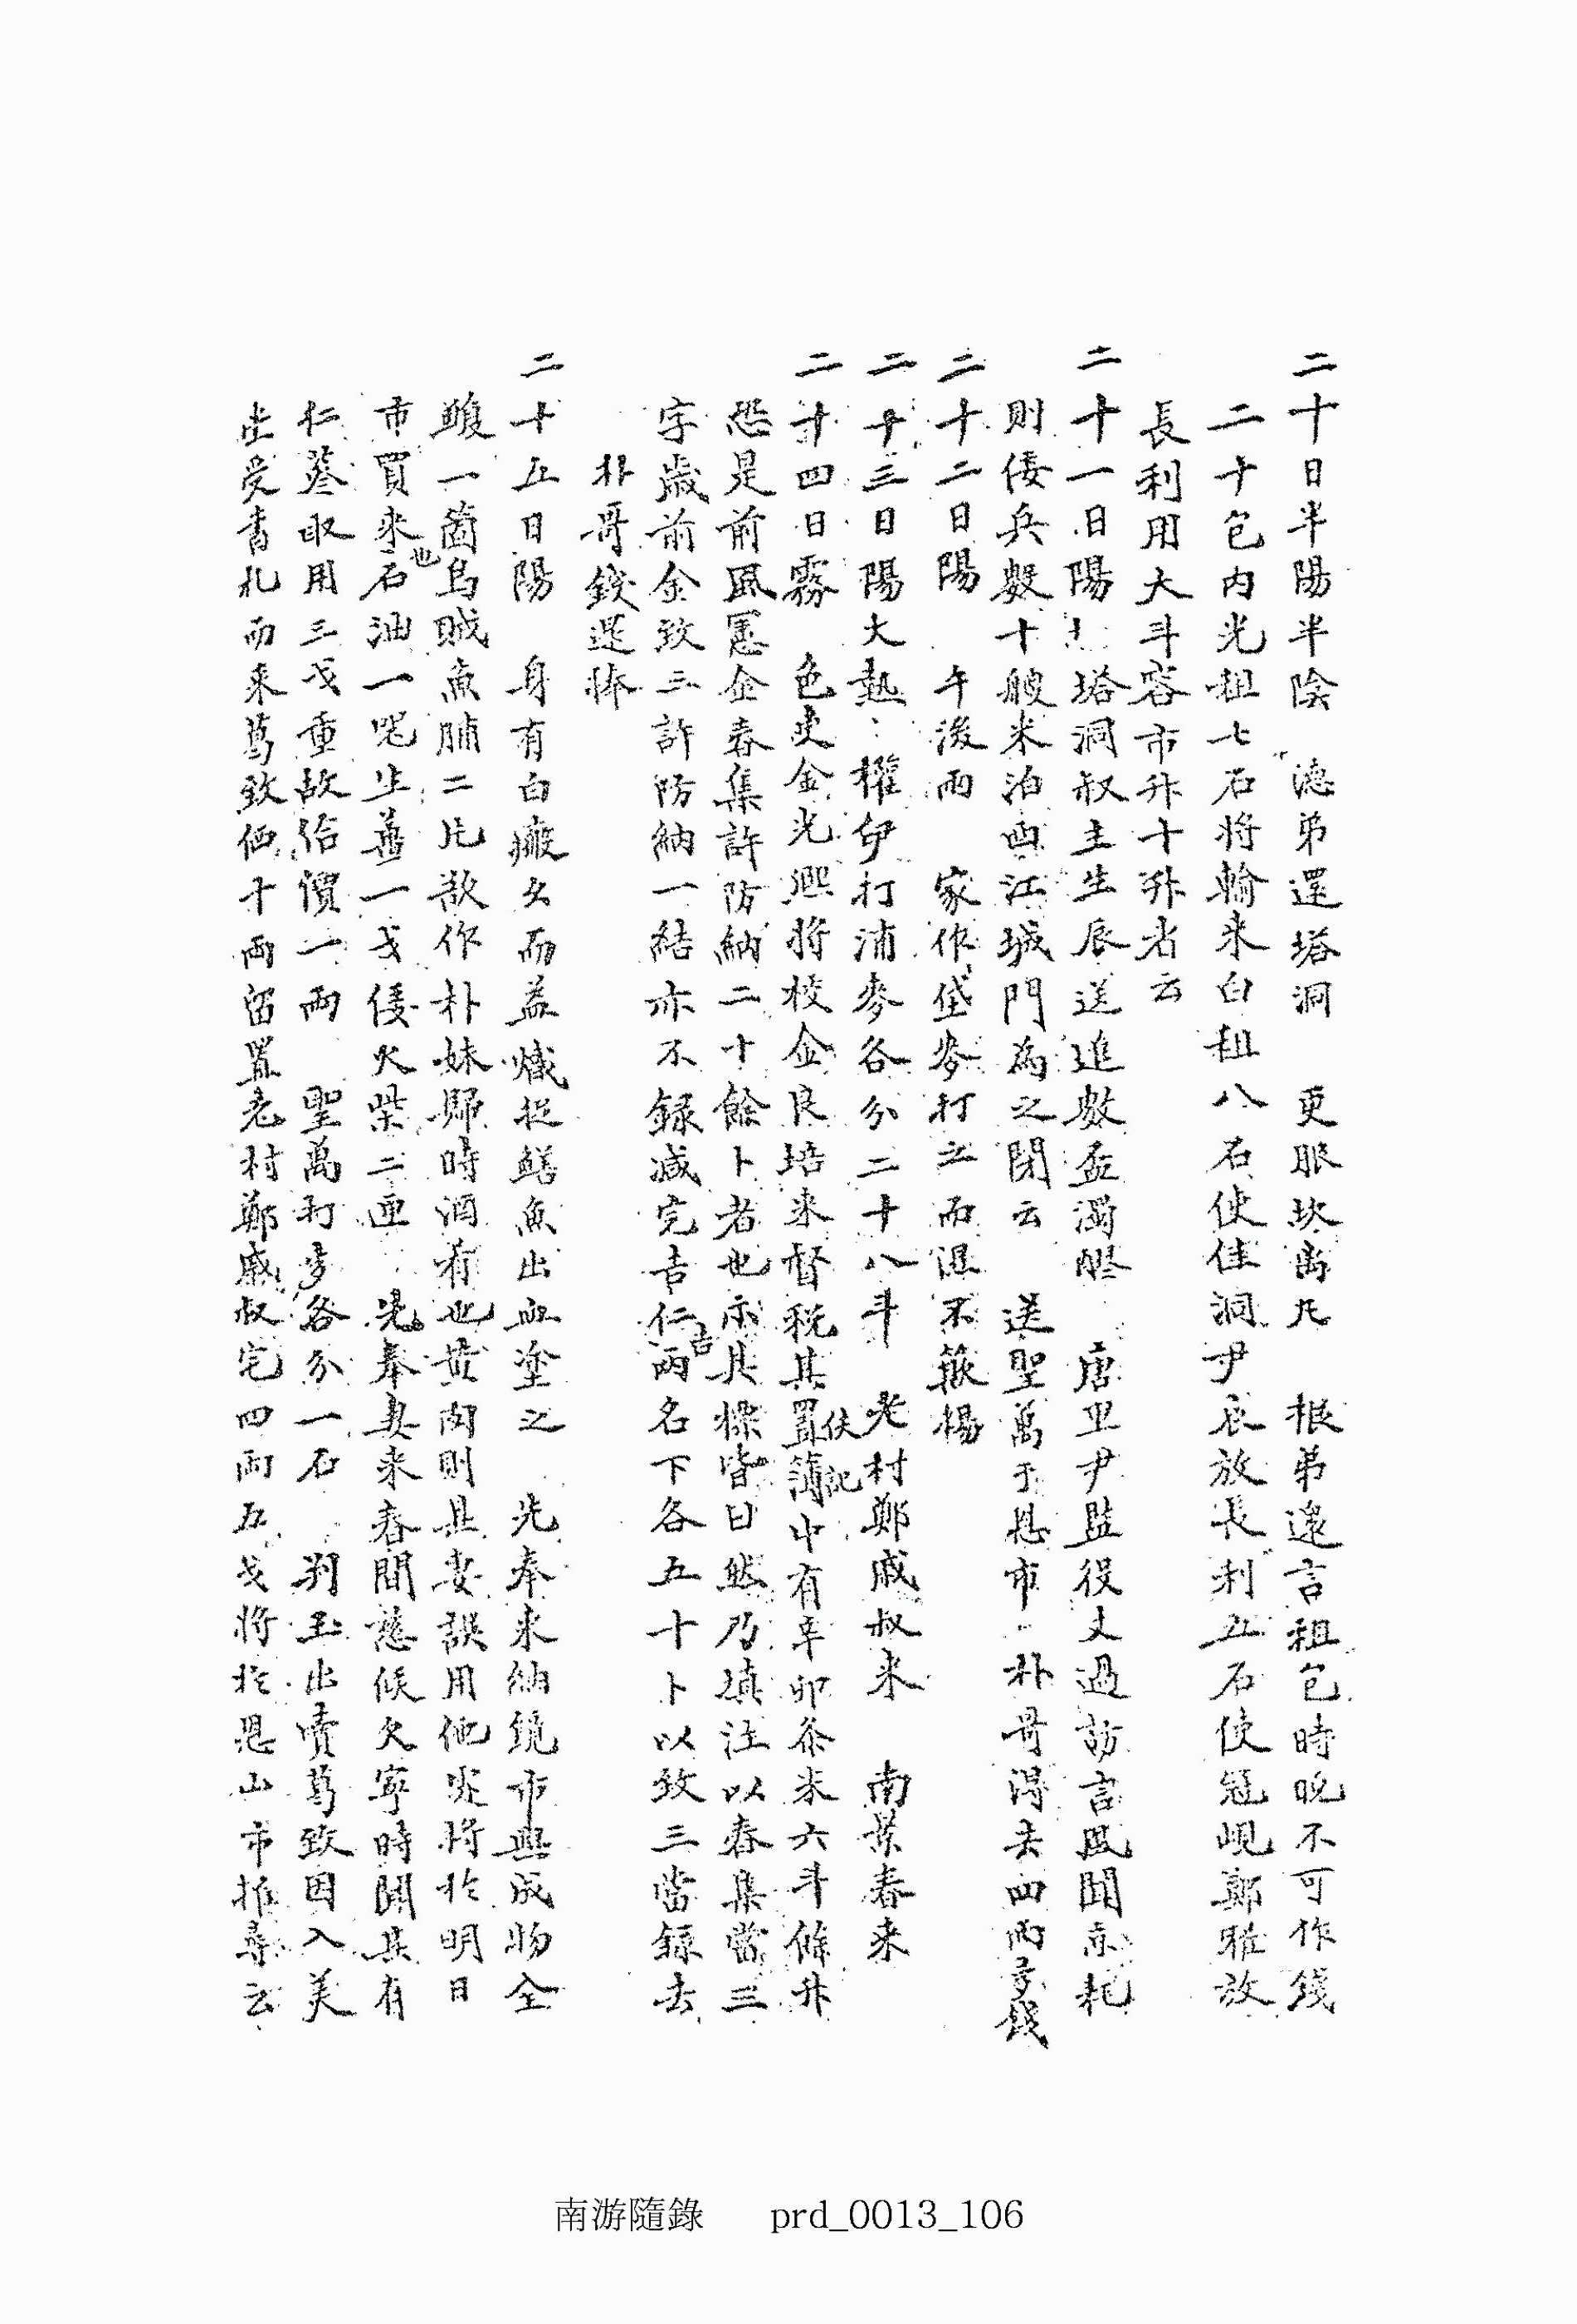 二十日半陽半陰 德弟還塔洞 更服坎离凡 根弟還言租包時晩不可作錢
二十包內光租七石将輸来白租八石使佳洞尹 放長利五石使冠峴鄭雅放
長利用大斗容市升十升者云
二十一日陽 塔洞叔主生辰送進數盃濁醪 唐里尹監役丈過訪言風聞京耗
則倭兵數十艘米泊西江城門為之閉云 送聖萬于恩市 朴哥得去四兩 錢
二十二日陽 午後雨 家作垈麥打之而濕不簸楊
二十三日陽大熱 權伊打浦麥各分二十八斗 老村鄭戚叔来 南業春来
二十四日霧 色吏金光熙将校金良培来督税其置簿中有辛卯条米六斗餘升
伕記
恐是前風憲金春集許防納二十餘卜者也示其㨾皆曰然乃填注以春集當三
字歲前金致三許防納一結亦不録减完吉仁兩名下各五十卜以致三當録去
吉
朴哥錢還捧
二十五日陽 身有白癜久而益熾捉鱔魚出血塗之 光奉来納鏡市興成物全
鰒一箇烏賊魚脯二片欲作朴妹歸時酒肴也黄肉則其妻誤用他 将於明日
市買来也石油一 生薑一戋倭火柴二匣 光奉妻来春間慈候欠寧時聞其有
仁蔘取用三戋重故給價一兩 聖萬打麥各分一石 判玉出嘖葛致因入美
出受書札而来葛致価十兩留置老村鄭戚叔宅四兩五戋将於恩山市推尋云
南游隨錄 prd_0013_106